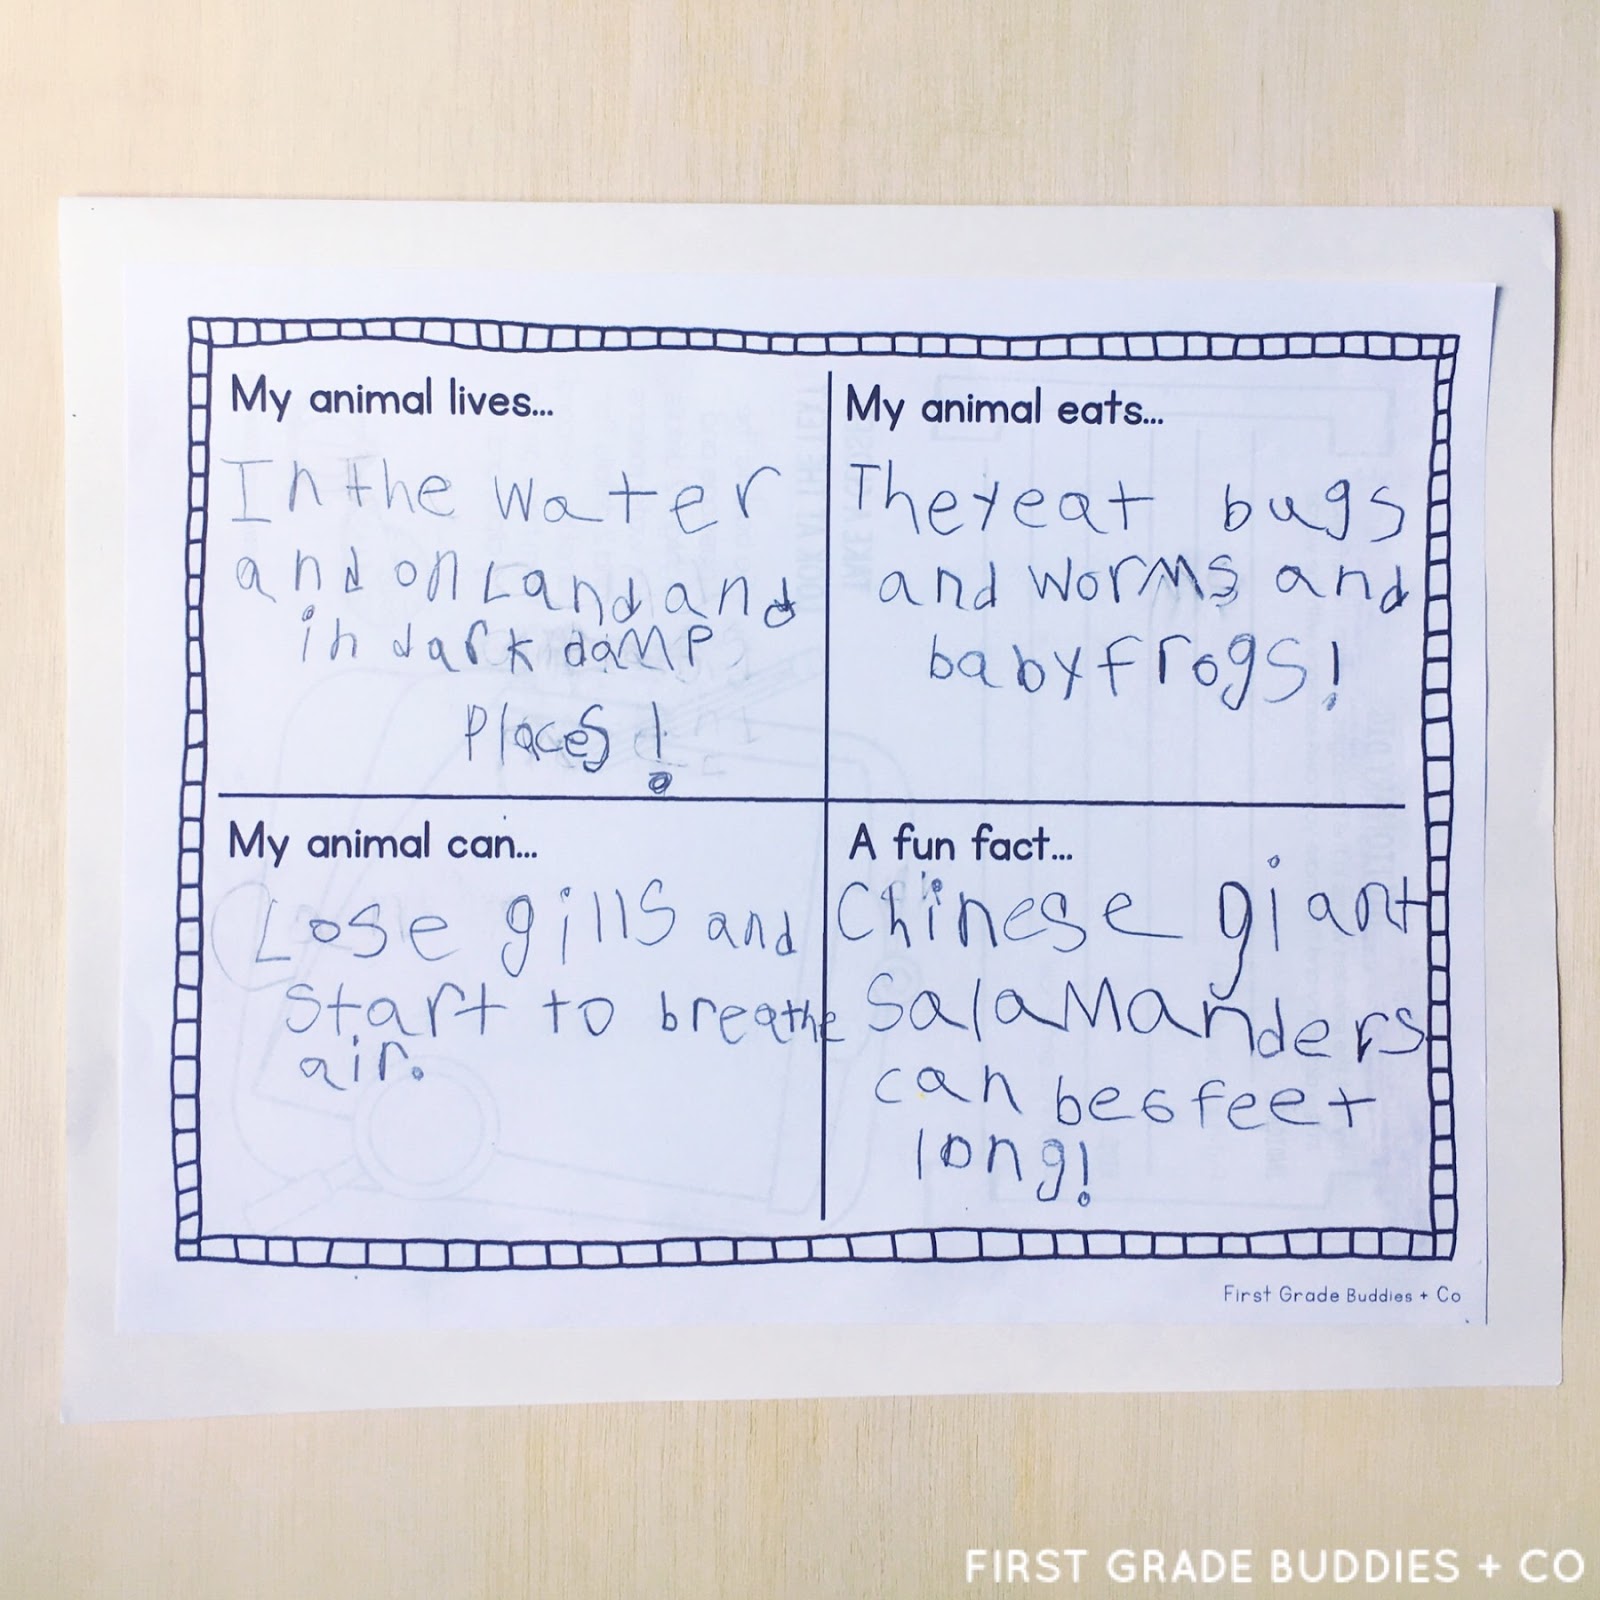 My animal lives...
In the water
and on Land and
in dark damp
places!
My animal eats...
They eat bugs
and worms and
baby frogs!
My animal can...
Lose gills and
start to breathe
air.
A fun fact...
Chinese giant
SalaManders
can be 6 feet
long!
First Grade Buddies + Co
FIRST GRADE BUDDIES + CO